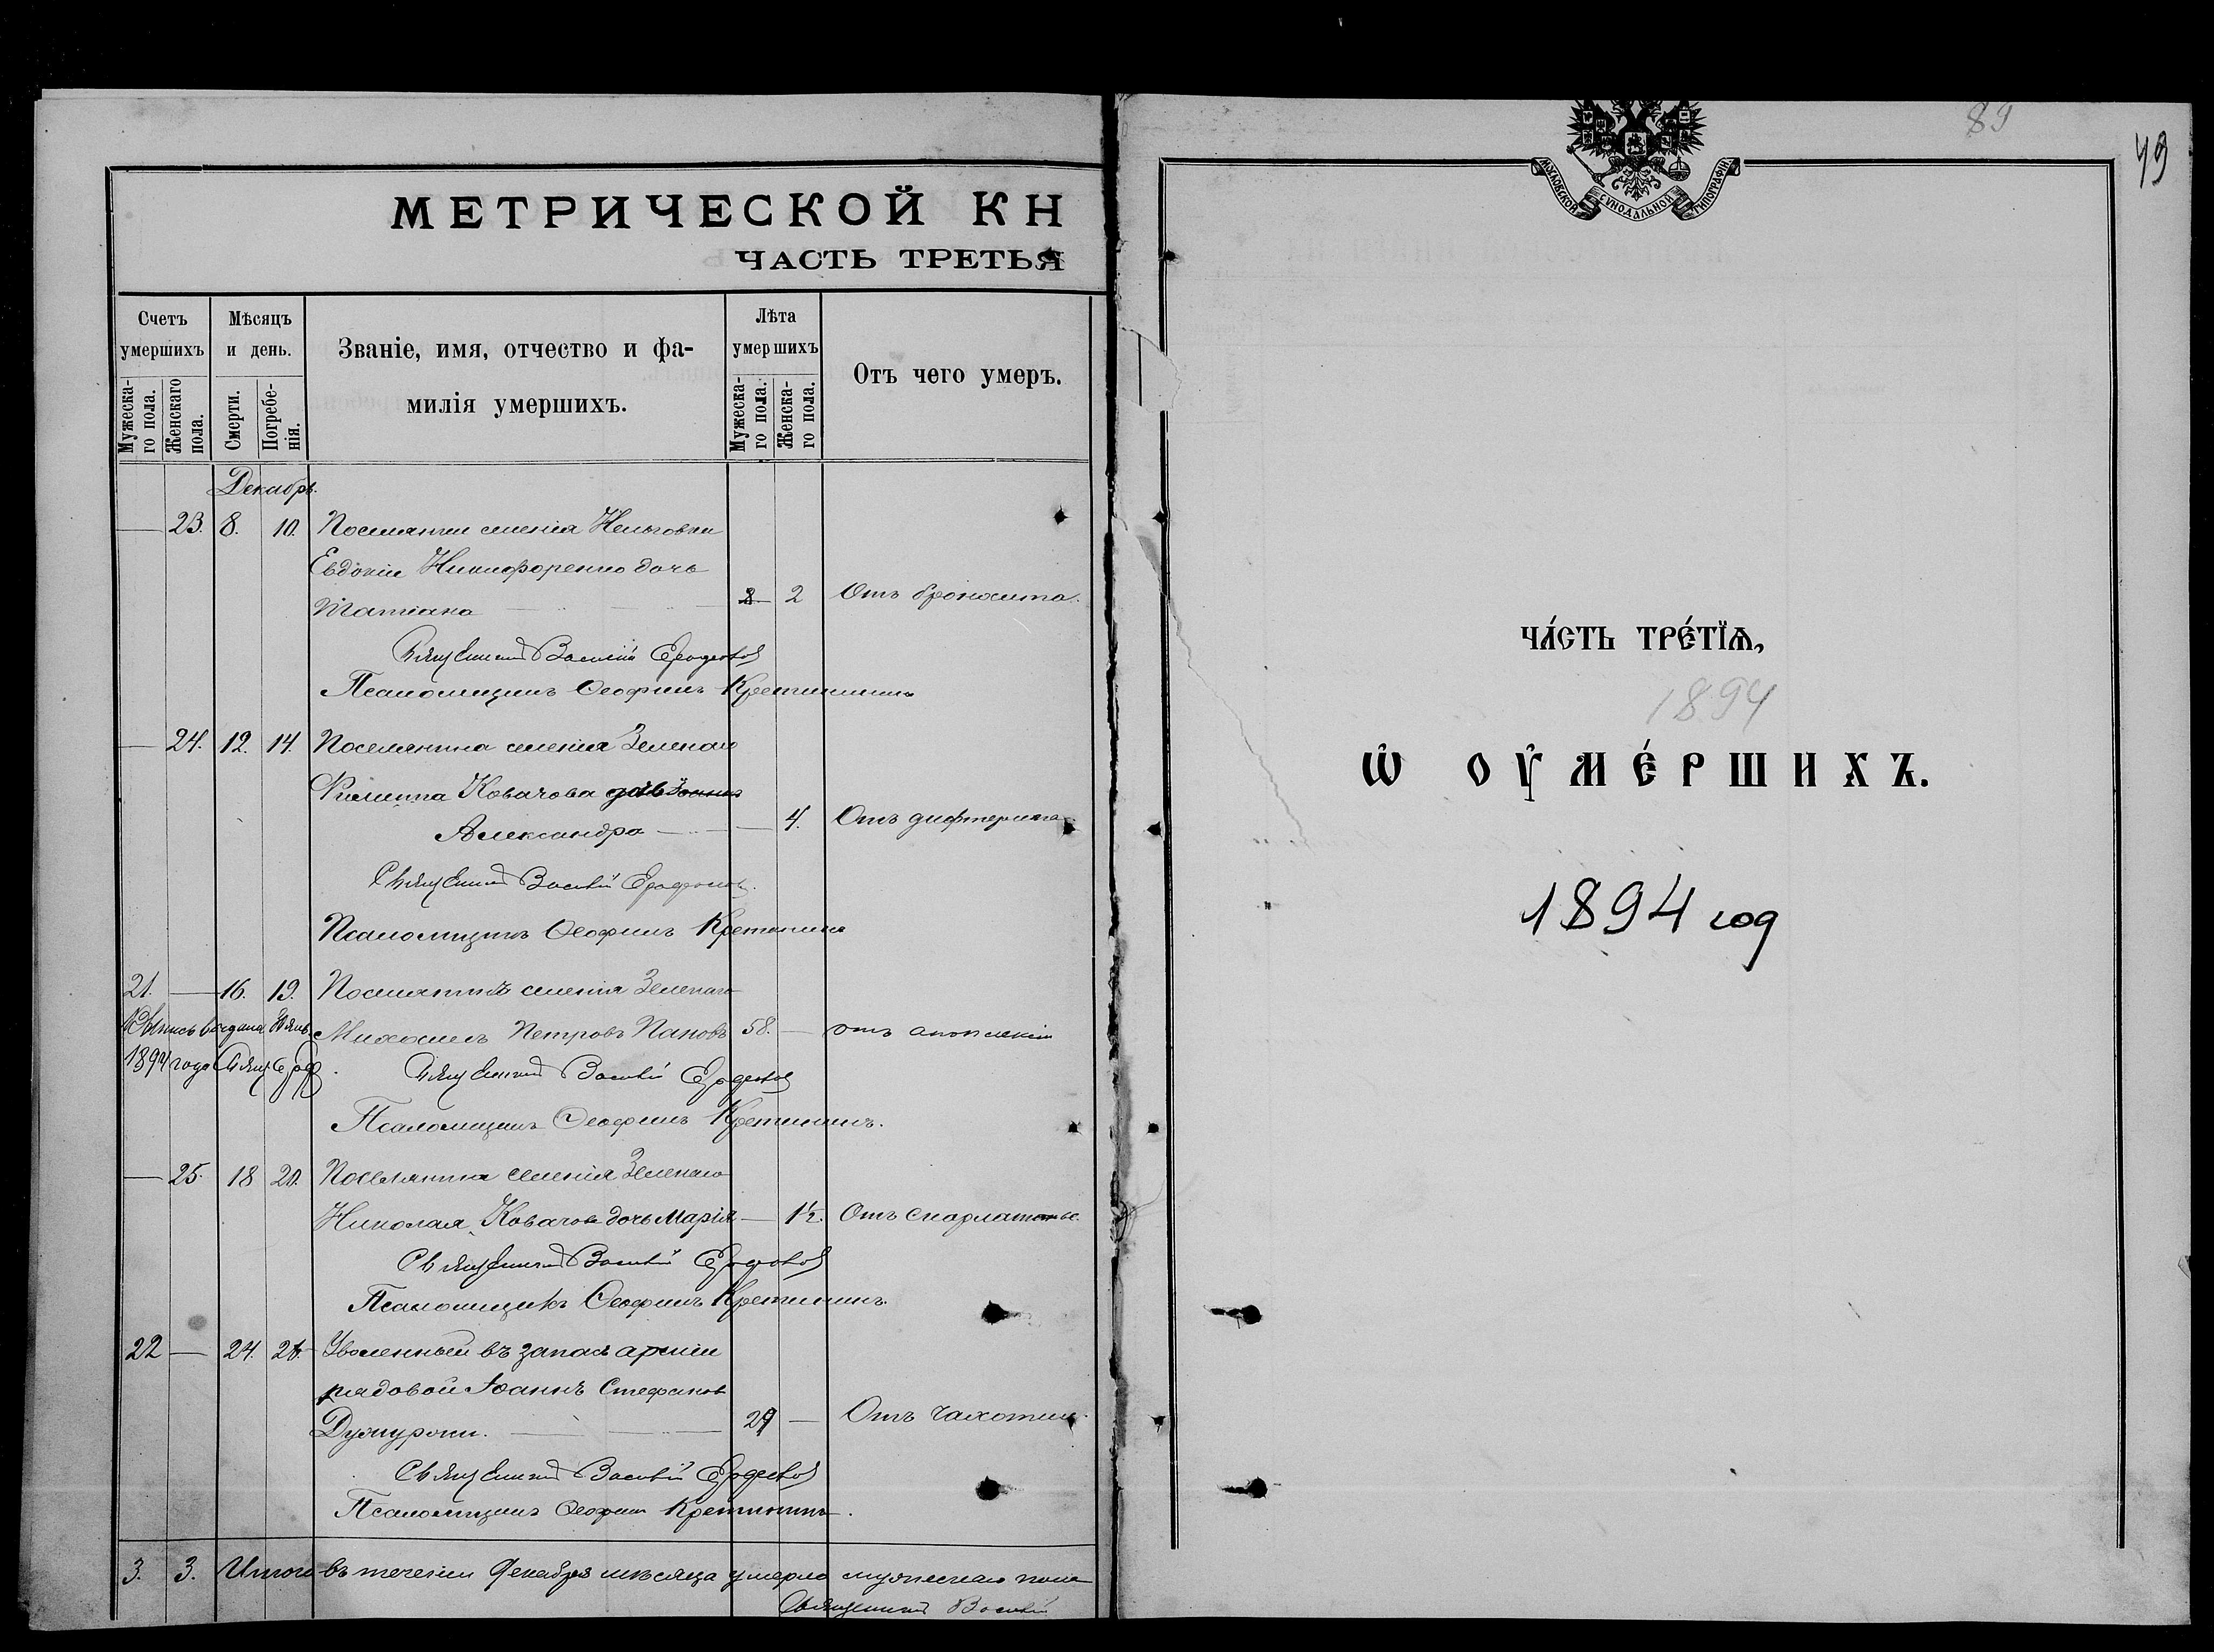 МЕТРИЧЕСКОЙ КН
ЧАСТЬ ТРЕТЬЯ
Счетъ умершихъ
Мужеска-го пола.
Женскаго пола.
Мѣсяцъ и день.
Смерти.
Погребе-нія.
Званіе, имя, отчество и фа-
милія умершихъ.
Лѣта умершихъ
Мужеска-го пола.
Женска-го пола.
Отъ чего умеръ.
Декабрь.
— 23. 8. 10. Поселянки селенія
Евдокіи Никифоренко дочь
Татіана 2 Отъ бронхита.
Священникъ Василій
Псаломщикъ Феофилъ Кретининъ
— 24. 12. 14. Поселянина селенія Зеленаго
Филиппа Ковачова
Александра — 4. Отъ дифтерита
Священникъ Василій
Псаломщикъ Феофилъ Кретининъ
21. — 16. 19. Поселянинъ селенія Зеленаго
Михаилъ Петровъ Пановъ 58. — отъ апоплексіи
1894 года
Священникъ Василій
Псаломщикъ Феофилъ Кретининъ.
— 25. 18 20. Поселянина селенія Зеленаго
Николая Ковачова дочь Марія — 1½. Отъ скарлатины.
Священникъ Василій
Псаломщикъ Феофилъ Кретининъ.
22 — 24. 26. Уволенный въ запасъ арміи
рядовой Іоаннъ Стефановъ
29 — Отъ чахотки.
Священникъ Василій
Псаломщикъ Феофилъ Кретининъ.
3. 3. Итого въ теченіи Декабря мѣсяца умерло мужескаго пола
Священникъ Василій
89
49
МОСКОВСКОЙ СѴНОДАЛЬНОЙ ТИПОГРАФІИ
ЧА́СТЬ ТРЕ́ТЇѦ,
1894
Ѡ҆ ОУ҆МЕ́РШИХЪ.
1894 год